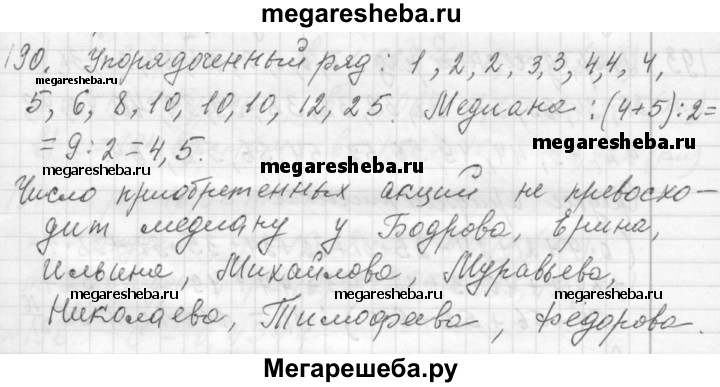 megaresheba.ru
190. Упорядоченный ряд: 1, 2, 2, 3, 3, 4, 4, 4,
megaresheba.ru
5, 6, 8, 10, 10, 10, 12, 25. Медиана: (4+5):2=
= 9:2=4,5. megaresheba.ru
megaresheba.ru megaresheba.ru
Число приобретенных акций не превосхо-
дит медиану у Бодрова, Ерина,
Ильина, Михайлова, Муравьева,
megaresheba.ru megaresheba.ru megaresheba.ru
Николаева, Тимофеева, Федорова.
Мегарешеба.ру